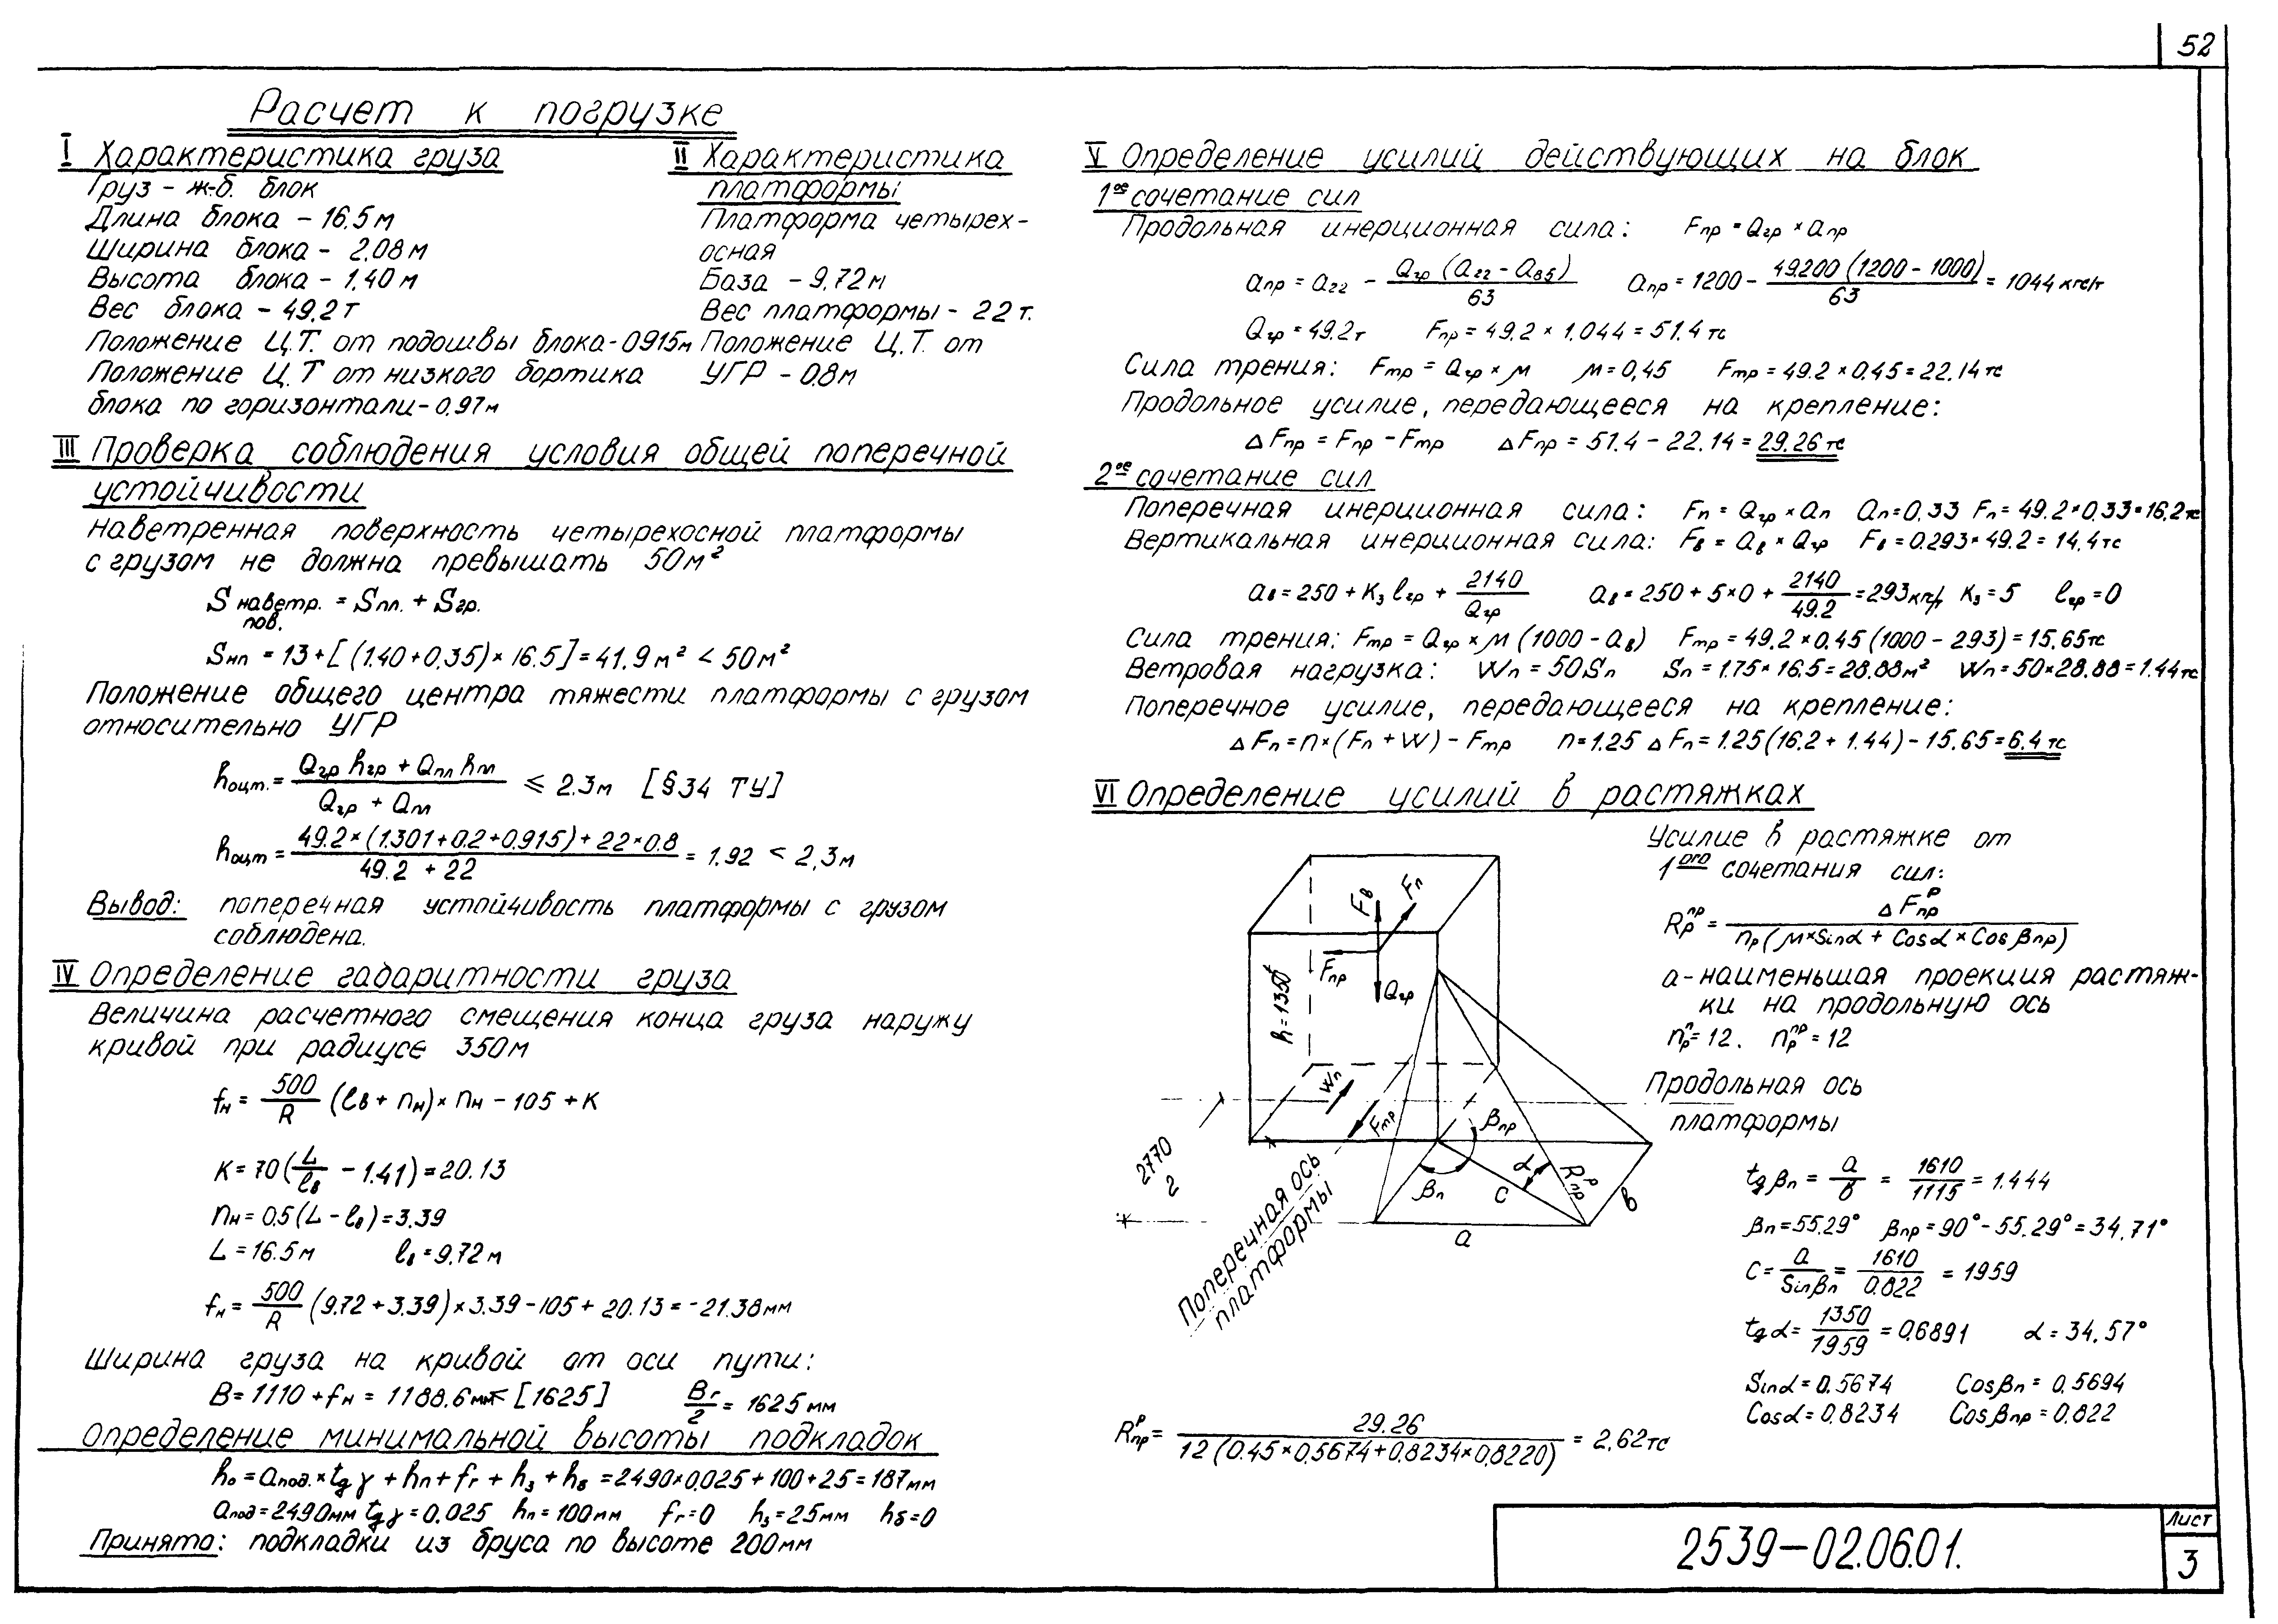 52
Расчет к погрузке
I Характеристика груза
Груз - ж-б. блок
Длина блока - 16.5 м
Ширина блока - 2.08 м
Высота блока - 1.40 м
Вес блока - 49.2 т
Положение Ц.Т. от подошвы блока - 0915 м
Положение Ц.Т от низкого бортика
блока по горизонтали - 0.97 м
II Характеристика
платформы
Платформа четырех-
осная
База - 9.72 м
Вес платформы - 22 т.
Положение Ц.Т. от
УГР - 0.8 м
III Проверка соблюдения условия общей поперечной
устойчивости
Наветренная поверхность четырехосной платформы
с грузом не должна превышать 50 м²
S наветр. пов. = Sпл. + Sгр.
Sнп = 13 + [(1.40 + 0.35) × 16.5] = 41.9 м² < 50 м²
Положение общего центра тяжести платформы с грузом
относительно УГР
hоцт. = (Qгр hгр + Qпл hпл) / (Qгр + Qпл) ≤ 2.3 м [§34 ТУ]
hоцт = (49.2 × (1.301 + 0.2 + 0.915) + 22 × 0.8) / (49.2 + 22) = 1.92 < 2,3 м
Вывод: поперечная устойчивость платформы с грузом
соблюдена.
IV Определение габаритности груза
Величина расчетного смещения конца груза наружу
кривой при радиусе 350 м
fн = 500/R (lв + nн) × nн - 105 + K
K = 70 (L/lв - 1.41) = 20.13
nн = 0.5 (L - lв) = 3.39
L = 16.5 м lв = 9.72 м
fн = 500/R (9.72 + 3.39) × 3.39 - 105 + 20.13 = -21.38 мм
Ширина груза на кривой от оси пути:
B = 1110 + fн = 1188.6 мм < [1625] Bг/2 = 1625 мм
Определение минимальной высоты подкладок
h₀ = aпод. × tg γ + hп + fг + hз + hб = 2490 × 0.025 + 100 + 25 = 187 мм
aпод = 2490 мм tg γ = 0.025 hп = 100 мм fг = 0 hз = 25 мм hб = 0
Принято: подкладки из бруса по высоте 200 мм
V Определение усилий действующих на блок
1ое сочетание сил
Продольная инерционная сила: Fпр = Qгр × aпр
aпр = a22 - Qгр (a22 - a85) / 63 aпр = 1200 - 49.200 (1200 - 1000) / 63 = 1044 кгс/т
Qгр = 49.2 т Fпр = 49.2 × 1.044 = 51.4 тс
Сила трения: Fтр = Qгр × м м = 0,45 Fтр = 49.2 × 0.45 = 22.14 тс
Продольное усилие, передающееся на крепление:
Δ Fпр = Fпр - Fтр Δ Fпр = 51.4 - 22.14 = 29.26 тс
2ое сочетание сил
Поперечная инерционная сила: Fп = Qгр × aп aп = 0.33 Fп = 49.2 × 0.33 = 16.2 тс
Вертикальная инерционная сила: Fв = aв × Qгр Fв = 0.293 × 49.2 = 14.4 тс
aв = 250 + Kз lгр + 2140/Qгр aв = 250 + 5×0 + 2140/49.2 = 293 кгс/т Kз = 5 lгр = 0
Сила трения: Fтр = Qгр × м (1000 - aв) Fтр = 49.2 × 0.45 (1000 - 293) = 15.65 тс
Ветровая нагрузка: Wп = 50 Sп Sп = 1.75 × 16.5 = 28.88 м² Wп = 50 × 28.88 = 1.44 тс
Поперечное усилие, передающееся на крепление:
Δ Fп = n × (Fп + W) - Fтр n = 1.25 Δ Fп = 1.25 (16.2 + 1.44) - 15.65 = 6.4 тс
VI Определение усилий в растяжках
Усилие в растяжке от
1ого сочетания сил:
Rрпр = Δ Fпрр / nр (м × Sinα + Cosα × Cos βпр)
а - наименьшая проекция растяж-
ки на продольную ось
nрп = 12. nрпр = 12
Продольная ось
платформы
Fв
Fп
Fпр
Qгр
h = 1350
Wп
Fтр
βпр
βп
α
c
Rпрр
в
a
2770
2
Поперечная ось
платформы
tg βп = a/в = 1610/1115 = 1.444
βп = 55.29° βпр = 90° - 55.29° = 34.71°
C = a/Sinβп = 1610/0.822 = 1959
tg α = 1350/1959 = 0.6891 α = 34.57°
Sinα = 0.5674 Cosβп = 0.5694
Cosα = 0.8234 Cosβпр = 0.822
Rпрр = 29.26 / 12 (0.45 × 0.5674 + 0.8234 × 0.8220) = 2.62 тс
2539-02.06.01.
Лист
3